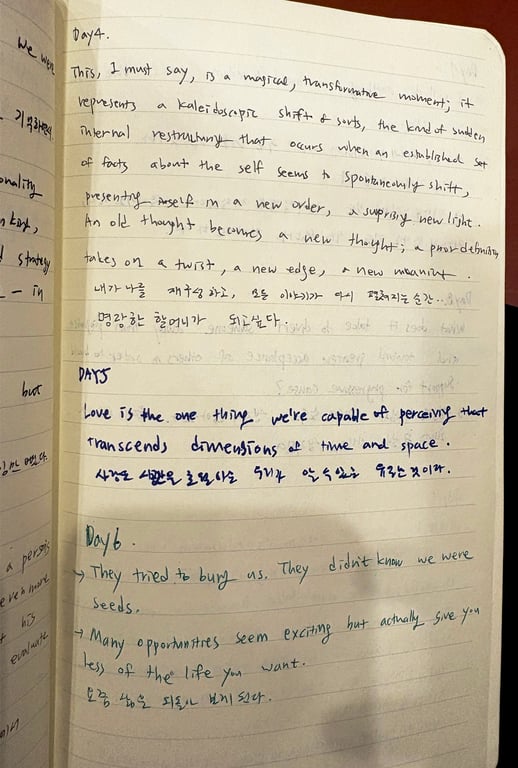 Day4.
This, I must say, is a magical, transformative moment; it
represents a kaleidoscopic shift of sorts, the kind of sudden
internal restructuring that occurs when an established set
of facts about the self seems to spontaneously shift,
presenting itself in a new order, a suprising new light.
An old thought becomes a new thought; a prior definition
takes on a twist, a new edge, a new meaning.
내가 나를 재구성하고, 모든 이야기가 다시 펼쳐지는 순간..
명랑한 할머니가 되고싶다.
DAY5
Love is the one thing we're capable of perceiving that
transcends dimensions of time and space.
사랑은 시공간을 초월하는 우리가 알 수 있는 유일한 것이다.
Day6.
→ They tried to bury us. They didn't know we were
seeds.
→ Many opportunities seem exciting but actually give you
less of the life you want.
요즘 삶을 되돌아 보게 된다.
we were
onality
strategy
— in
but
a person
even more
his
evaluate